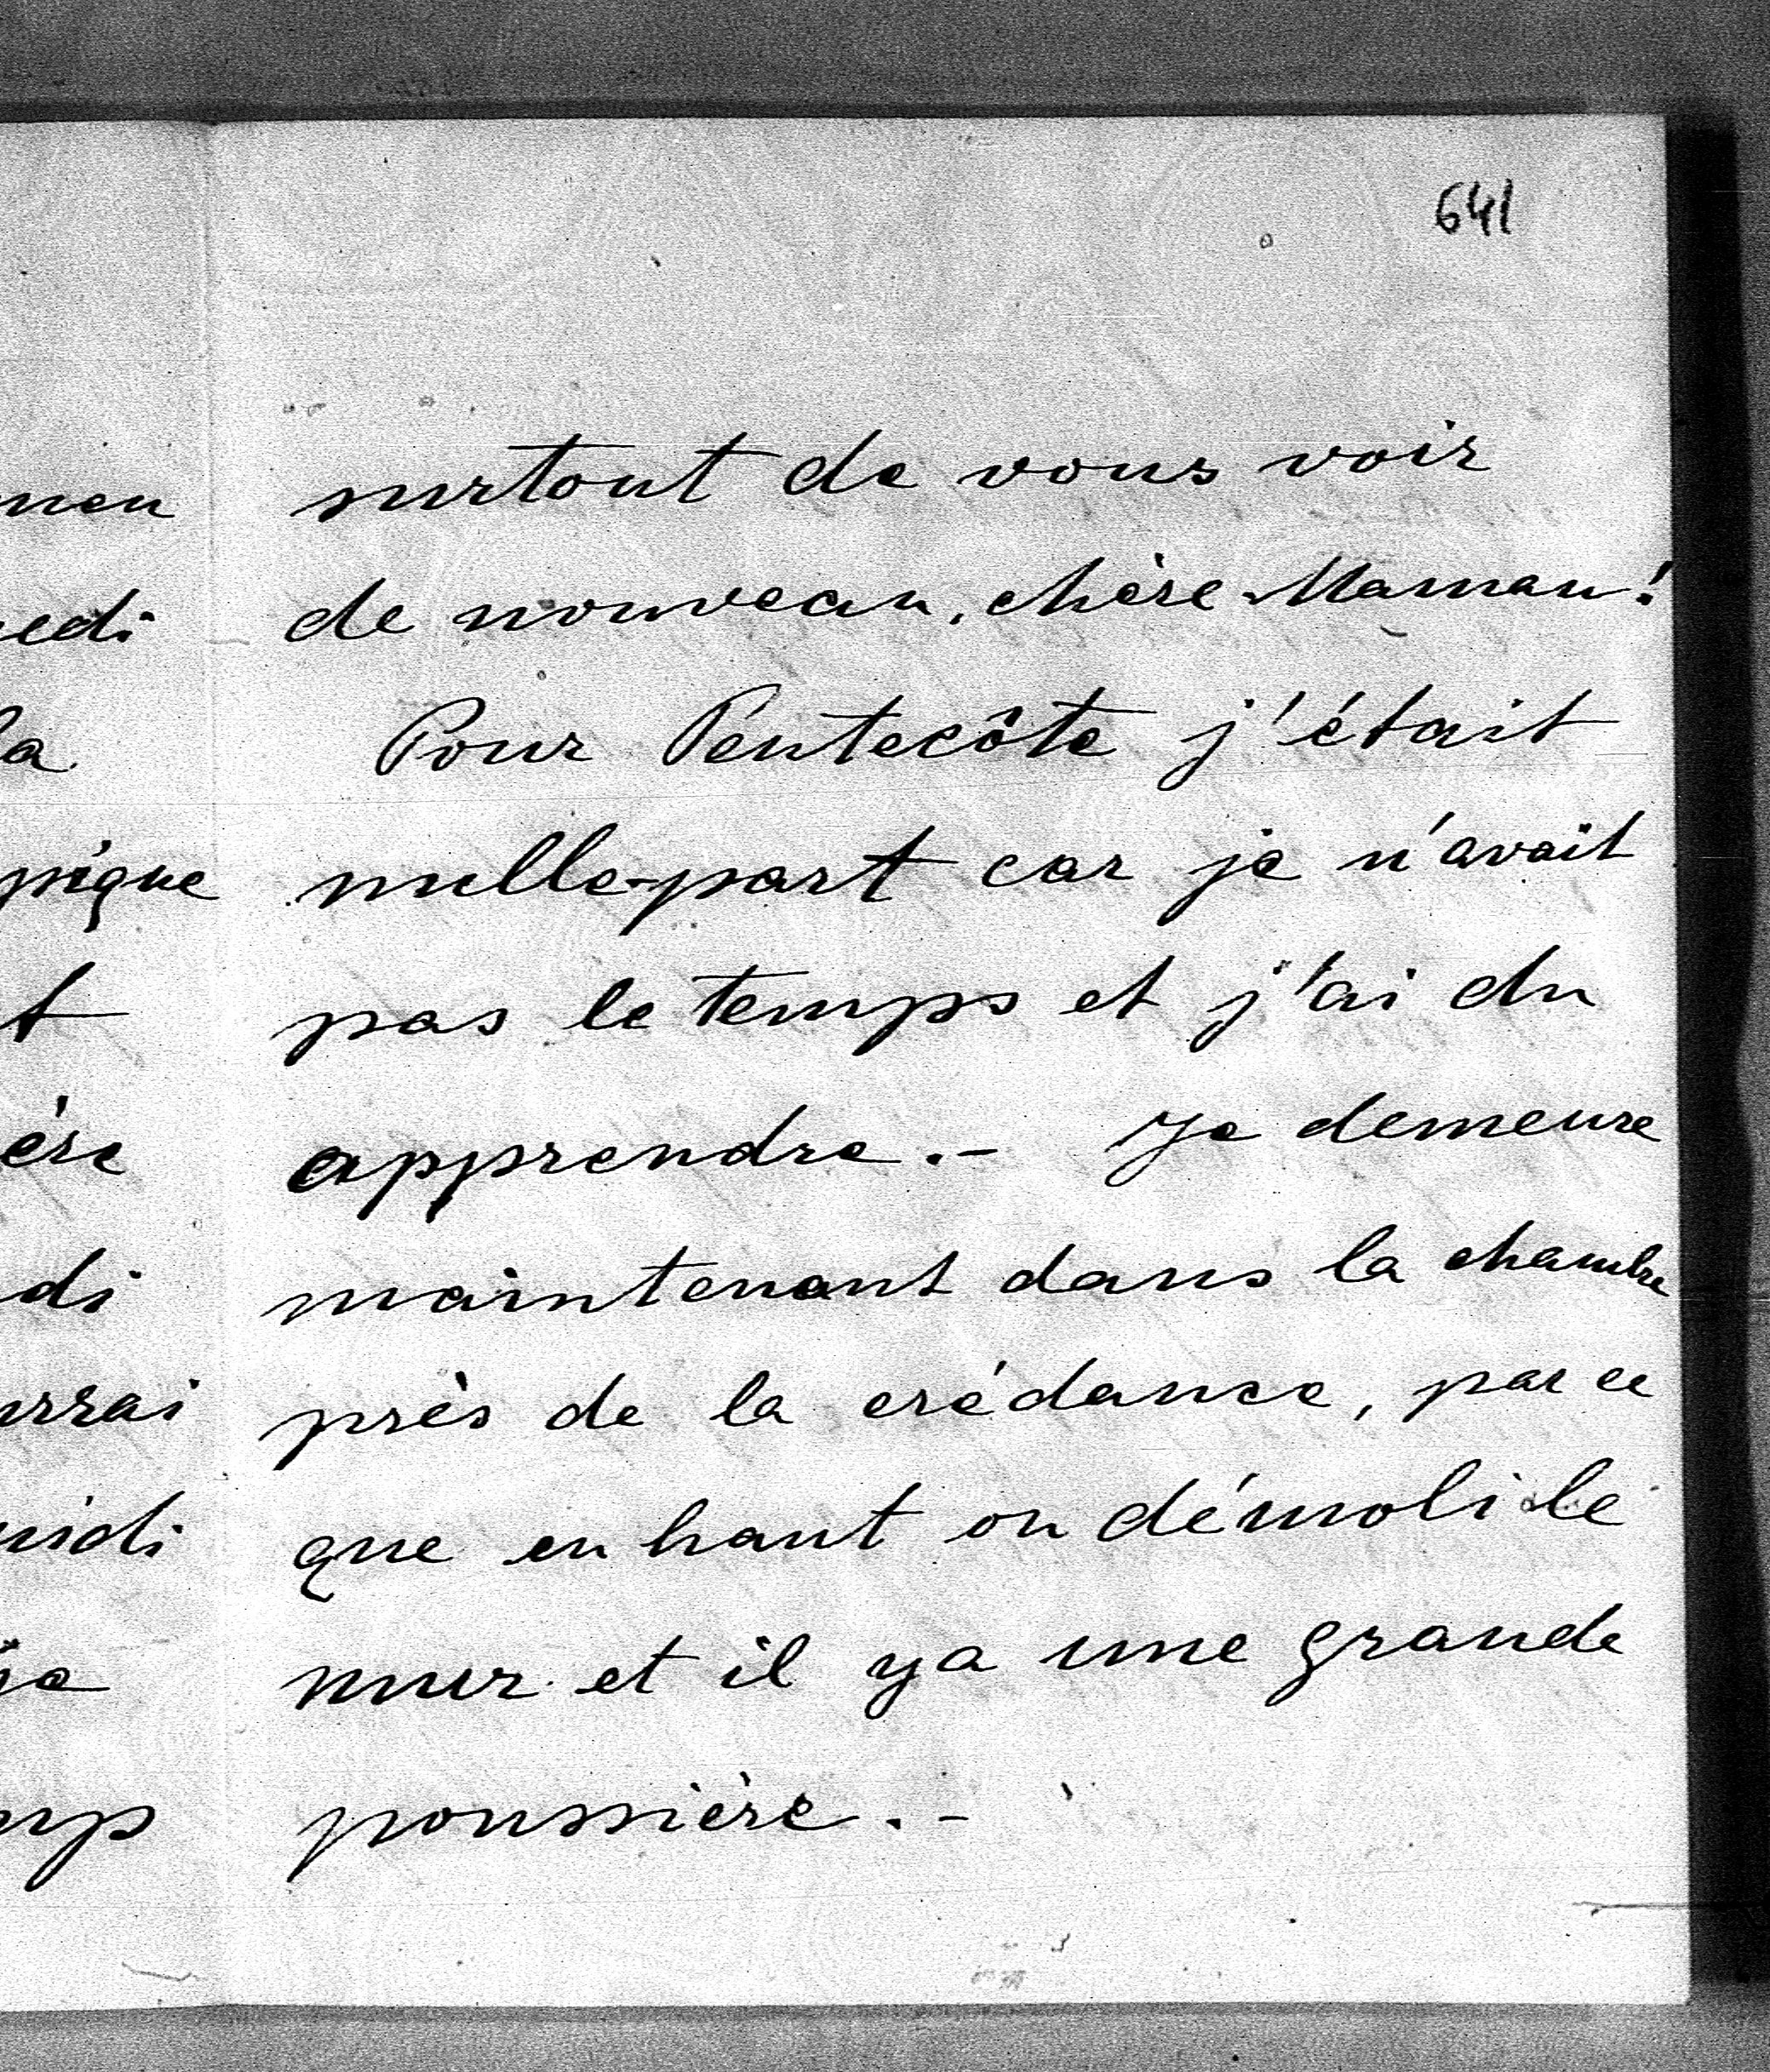 641
surtout de vous voir
de nouveau, chère Maman!
Pour Pentecôte j'était
nulle-part car je n'avait
pas le temps et j'ai du
apprendre.- Je demeure
maintenant dans la chambre
près de la crédance, par ce
que en haut on démoli le
mur et il y a une grande
poussière.-